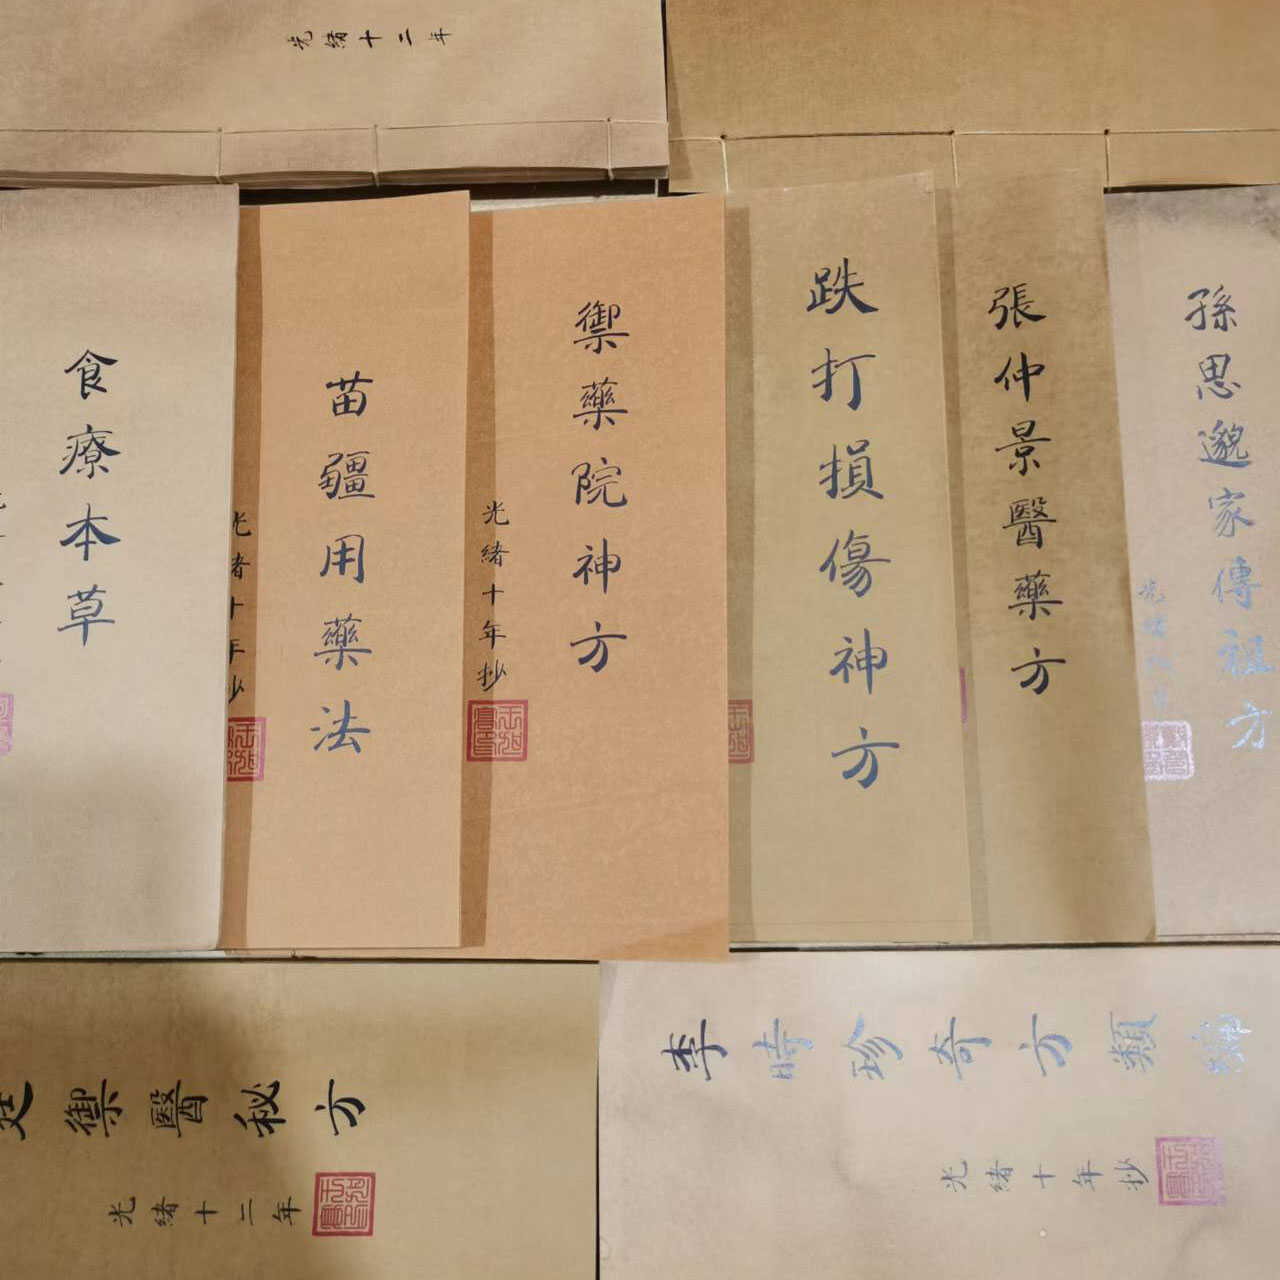 光緒十二年
食療本草
苗疆用藥法
光緒十年抄
禦藥院神方
光緒十年抄
跌打損傷神方
張仲景醫藥方
孫思邈家傳祖方
光緒
廷禦醫秘方
光緒十二年
李時珍奇方類編
光緒十年抄